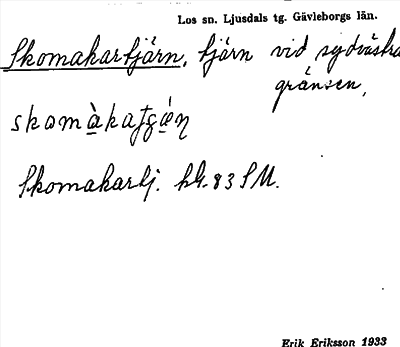 Los sn. Ljusdals tg. Gävleborgs län.
Skomakartjärn, tjärn vid sydvästra
gränsen,
Skomakartj. hd. 83 SV.
Erik Eriksson 1933